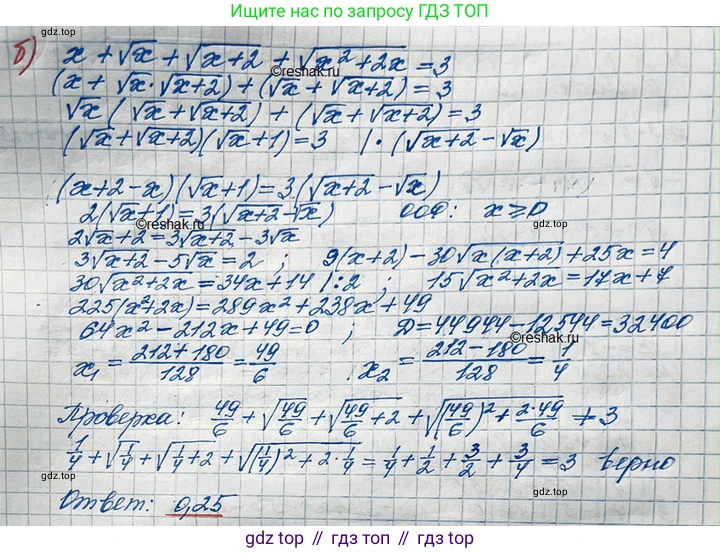 Ищите нас по запросу ГДЗ ТОП
gdz.top
gdz.top
б) x + √x + √(x+2) + √(x²+2x) = 3
©reshak.ru
(x + √x·√(x+2)) + (√x + √(x+2)) = 3
√x (√x + √(x+2)) + (√x + √(x+2)) = 3
(√x + √(x+2))(√x + 1) = 3 | · (√(x+2) − √x)
(x+2−x)(√x+1) = 3(√(x+2) − √x)
2(√x+1) = 3(√(x+2) − √x) ООФ: x ≥ 0
©reshak.ru
gdz.top
2√x + 2 = 3√(x+2) − 3√x
3√(x+2) − 5√x = 2 ; 9(x+2) − 30√(x(x+2)) + 25x = 4
30√(x²+2x) = 34x + 14 |:2 ; 15√(x²+2x) = 17x + 7
225(x²+2x) = 289x² + 238x + 49
64x² − 212x + 49 = 0 ; D = 44944 − 12544 = 32400
©reshak.ru
x₁ = (212+180)/128 = 49/6 . x₂ = (212−180)/128 = 1/4
gdz.top
Проверка: 49/6 + √(49/6) + √(49/6 + 2) + √((49/6)² + 2·49/6) ≠ 3
1/4 + √(1/4) + √(1/4 + 2) + √((1/4)² + 2·1/4) = 1/4 + 1/2 + 3/2 + 3/4 = 3 верно
©reshak.ru
gdz.top
gdz.top
Ответ: 0,25
gdz.top
gdz.top // гдз.топ // gdz.top // гдз.топ // gdz.top